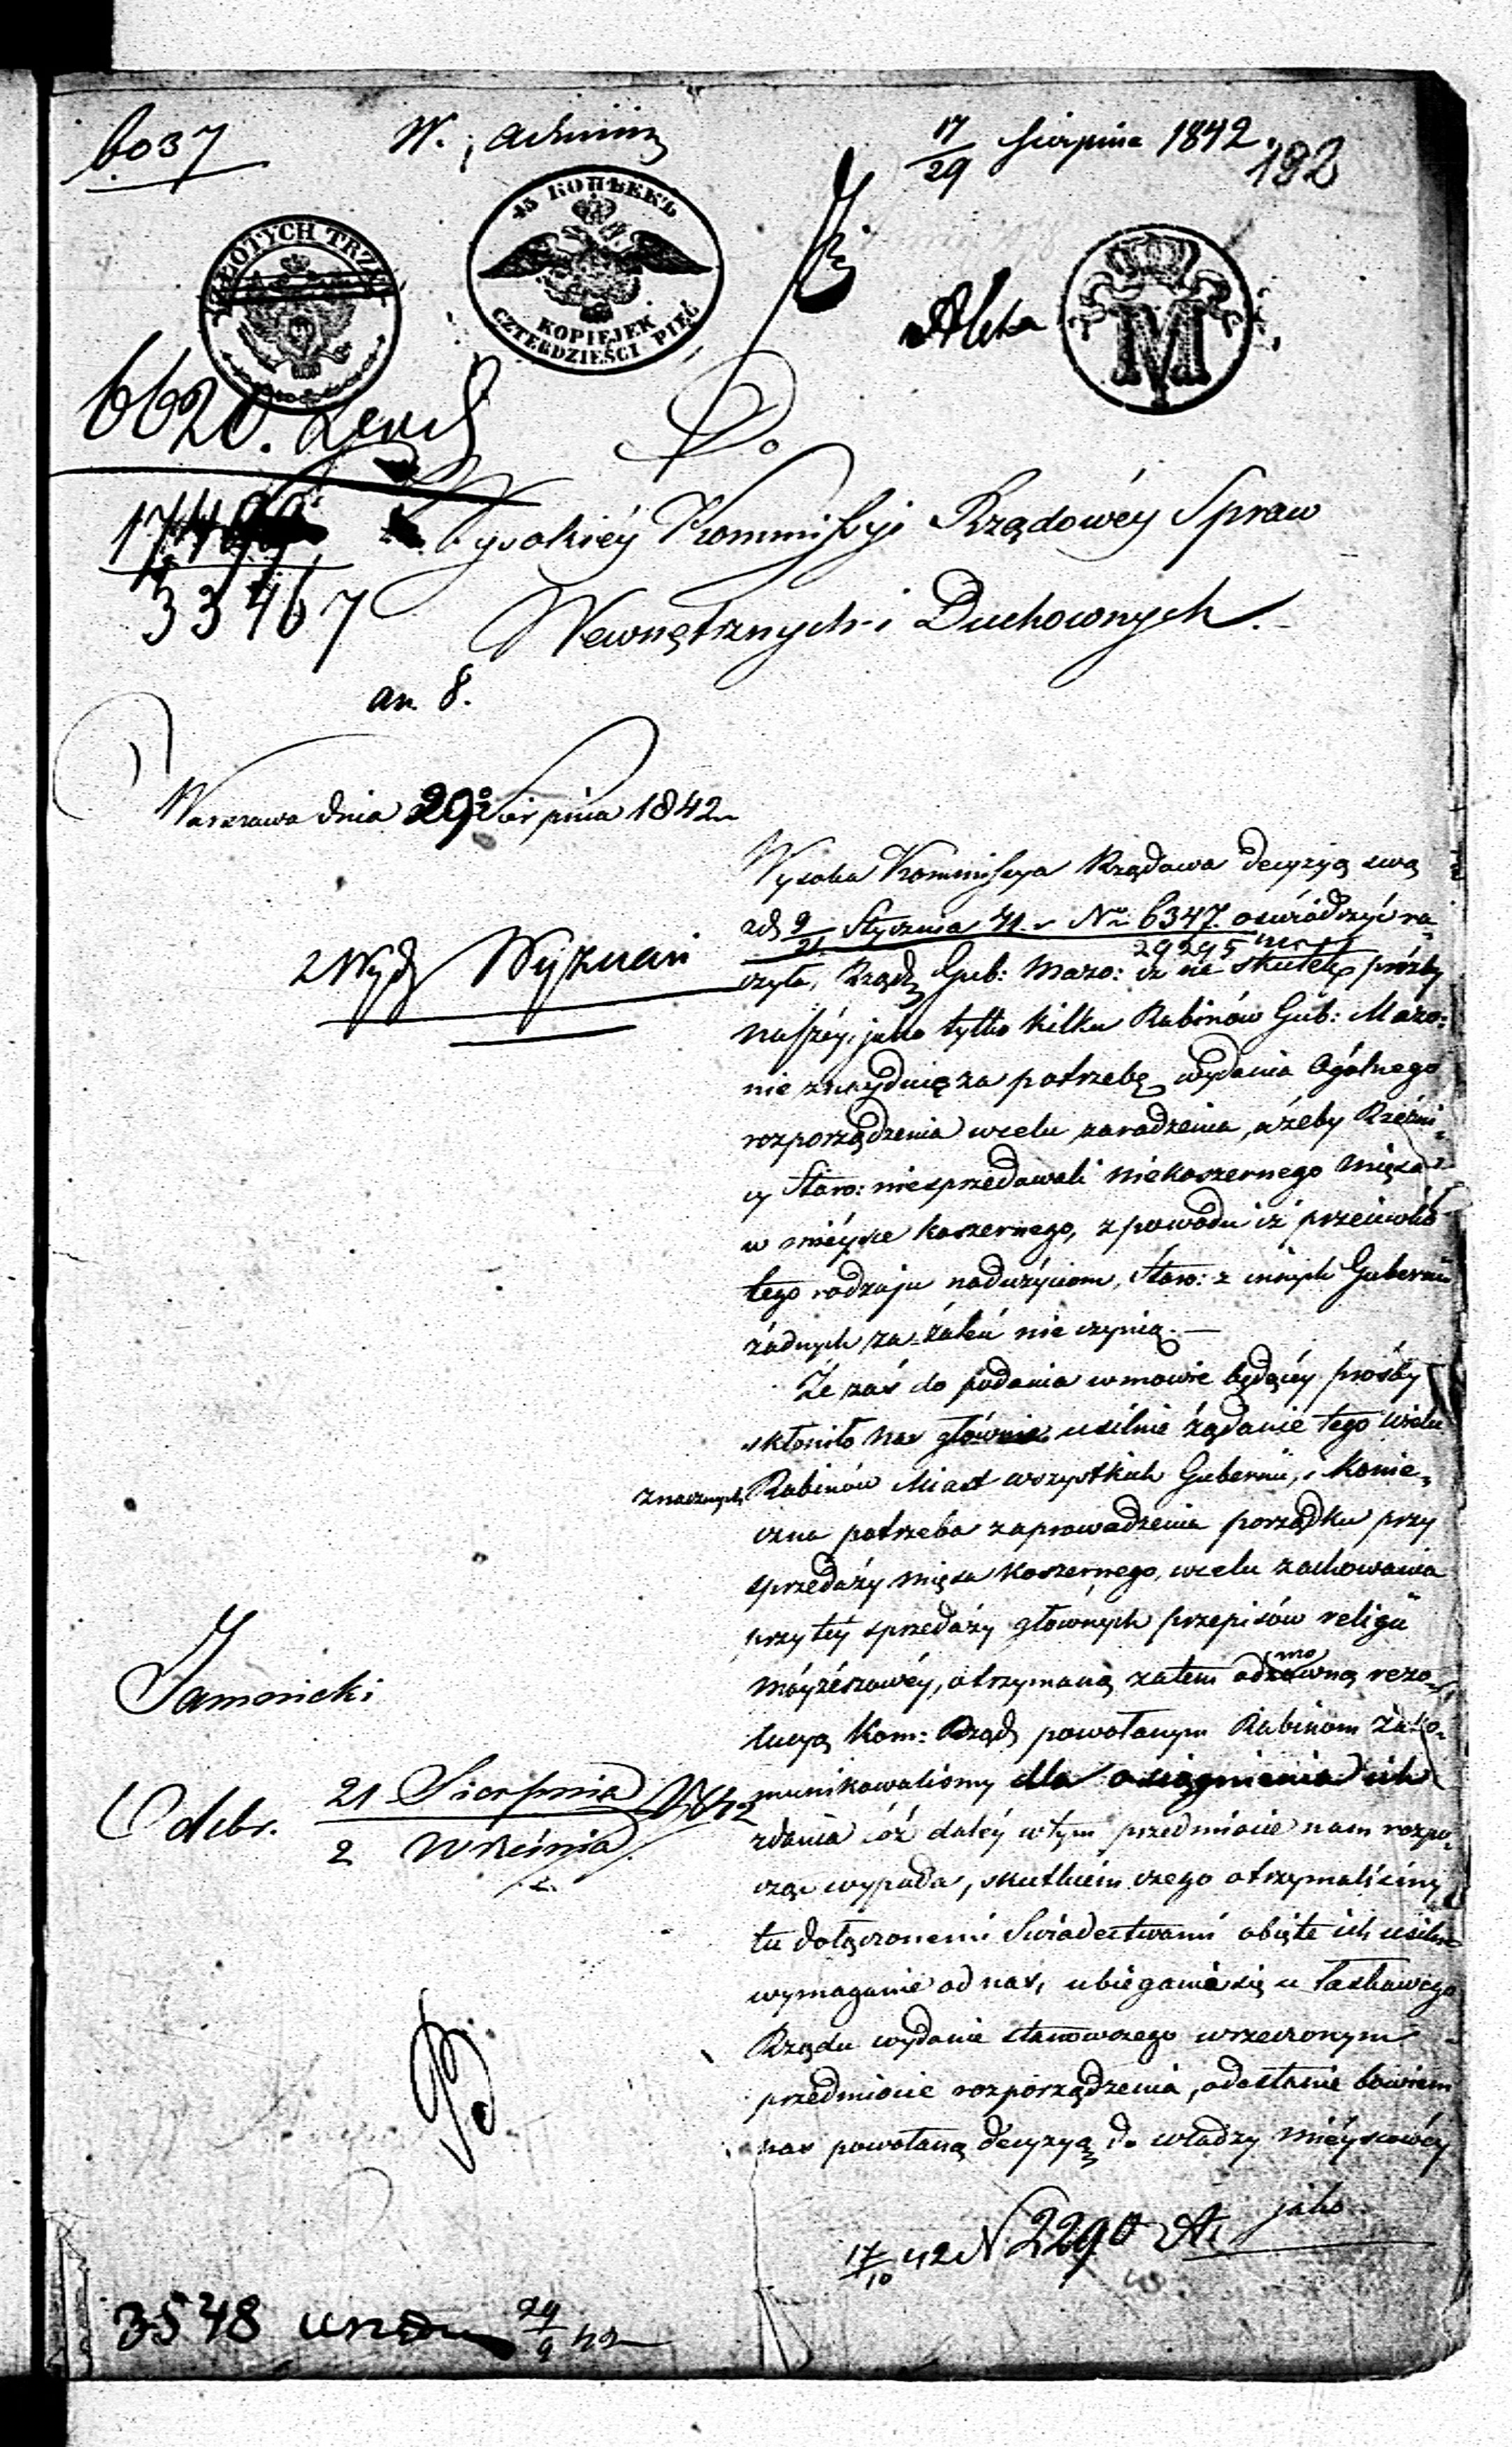 6037
W. Admin
17/29 Sierpnia 1842.
192
ZŁOTYCH TRZY
45 КОПѢЕКЪ
KOPIEJEK
CZTERDZIEŚCI PIĘĆ
M
6620.
Do
17499
Wysokiéy Kommissyi Rządowéy Spraw
33467
Wewnętrznych i Duchownych.
an. 8.
Warszawa dnia 29º Sierpnia 1842
Wysoka Kommissya Rządowa decyzyą swą
od 9/21 Stycznia 41. r. Nr 6347. oświádczyć ra-
29295
czyła, Rządz. Gub: Mazo: iż na skutek prośby
naszéy, jako tylko kilku Rabinów Gub: Mazo:
nie znayduię za potrzebę wydania Ogólnego
rozporządzenia w celu zaradzenia, ażeby Rzeźni-
cy Staro: niesprzedawali niekoszernego mięsa
w miéysce koszernego, z powodu iż przeciwko
tego rodzaju nadużyciom, Staro: z innych Gubernii
żadnych zażaleń nie czynią.—
Że zaś do podania w mowie będącéy prośby
skłoniło nas głównie usilnie żądanie tego wielu
znacznych Rabinów Miast wszystkich Gubernii, i konie-
czna potrzeba zaprowadzenia porządku przy
sprzedaży mięsa koszernego, w celu zachowania
przy téy sprzedaży głównych przepisów religii
Móyżeszowéy, otrzymaną zatem odmowną rezo-
lucyą Kom: Rząd. powołanym Rabinom zako-
munikowaliśmy dla osiągnienia ich
zdania cóż daléy w tym przedmiocie nam rozpo-
cząć wypada, skutkiem czego otrzymaliśmy
tu dołączonemi Świadectwami obięte ich usilne
wymaganie od nas, ubiegania się u łaskawego
Rządu wydanie stanowczego w rzeczonym
przedmiocie rozporządzenia, odesłanie bowiem
nas powołaną decyzyą do władzy miéyscowéy
jako
2 Wydz Wyznań
Jamonicki
Odebr. 21 Sierpnia/2 Września 1842
17/10 42 N 2290
3548 29/9 42